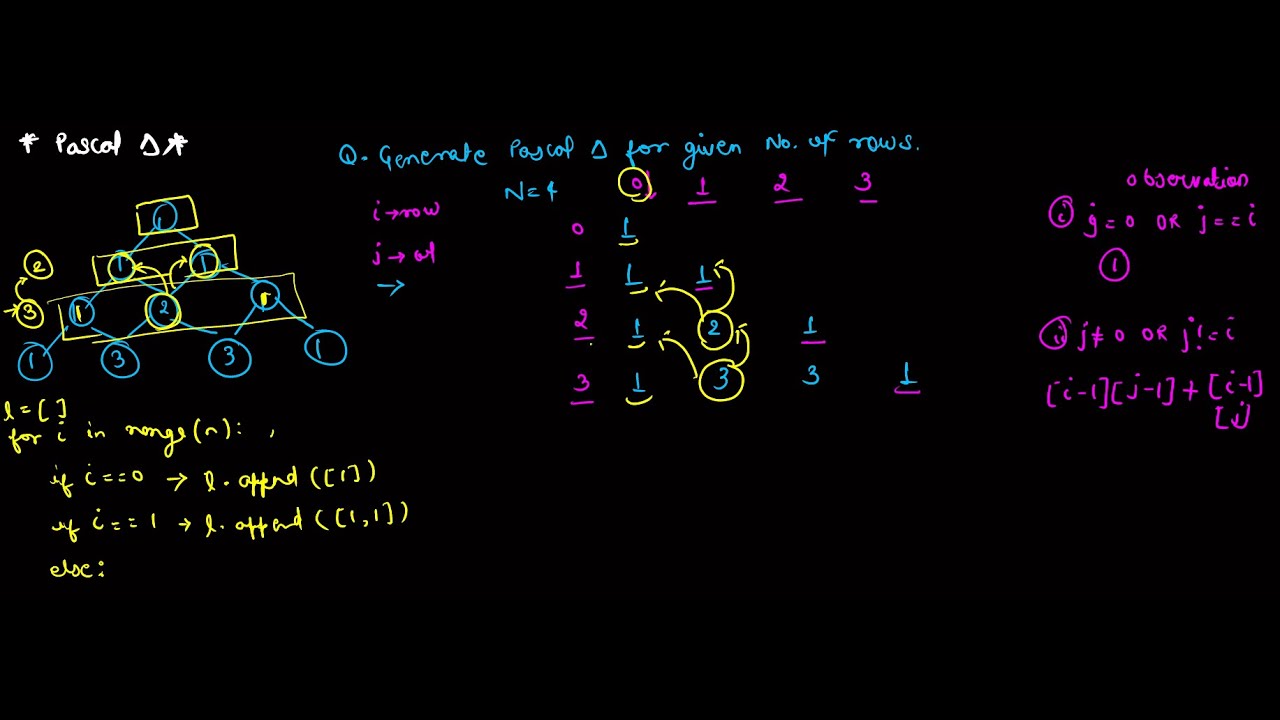 * Pascal Δ *
Q. Generate Pascal Δ for given No. of rows.
N=4
0 1 2 3
i → row
j → col
→
0 1
1 1 1
2 1 2 1
3 1 3 3 1
1
1 1
1 2 1
1 3 3 1
2
→ 3
l = [ ]
for i in range(n):
if i==0 → l.append([1])
if i==1 → l.append([1,1])
else:
observation
(i) j=0 OR j==i
1
(ii) j≠0 OR j!=i
[i-1][j-1] + [i-1]
[j]